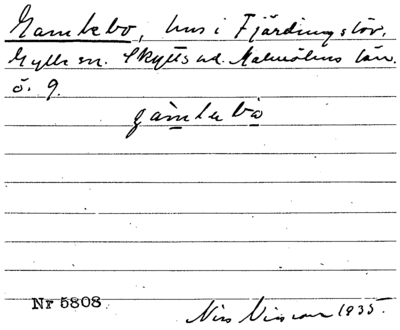 Gamlebo, hus i Fjärdingslöv,
Gylle sn. Skytts hd. Malmöhus län.
ö. 9.
gàmlebò
Nr 5808. Nils Nilsson 1935.